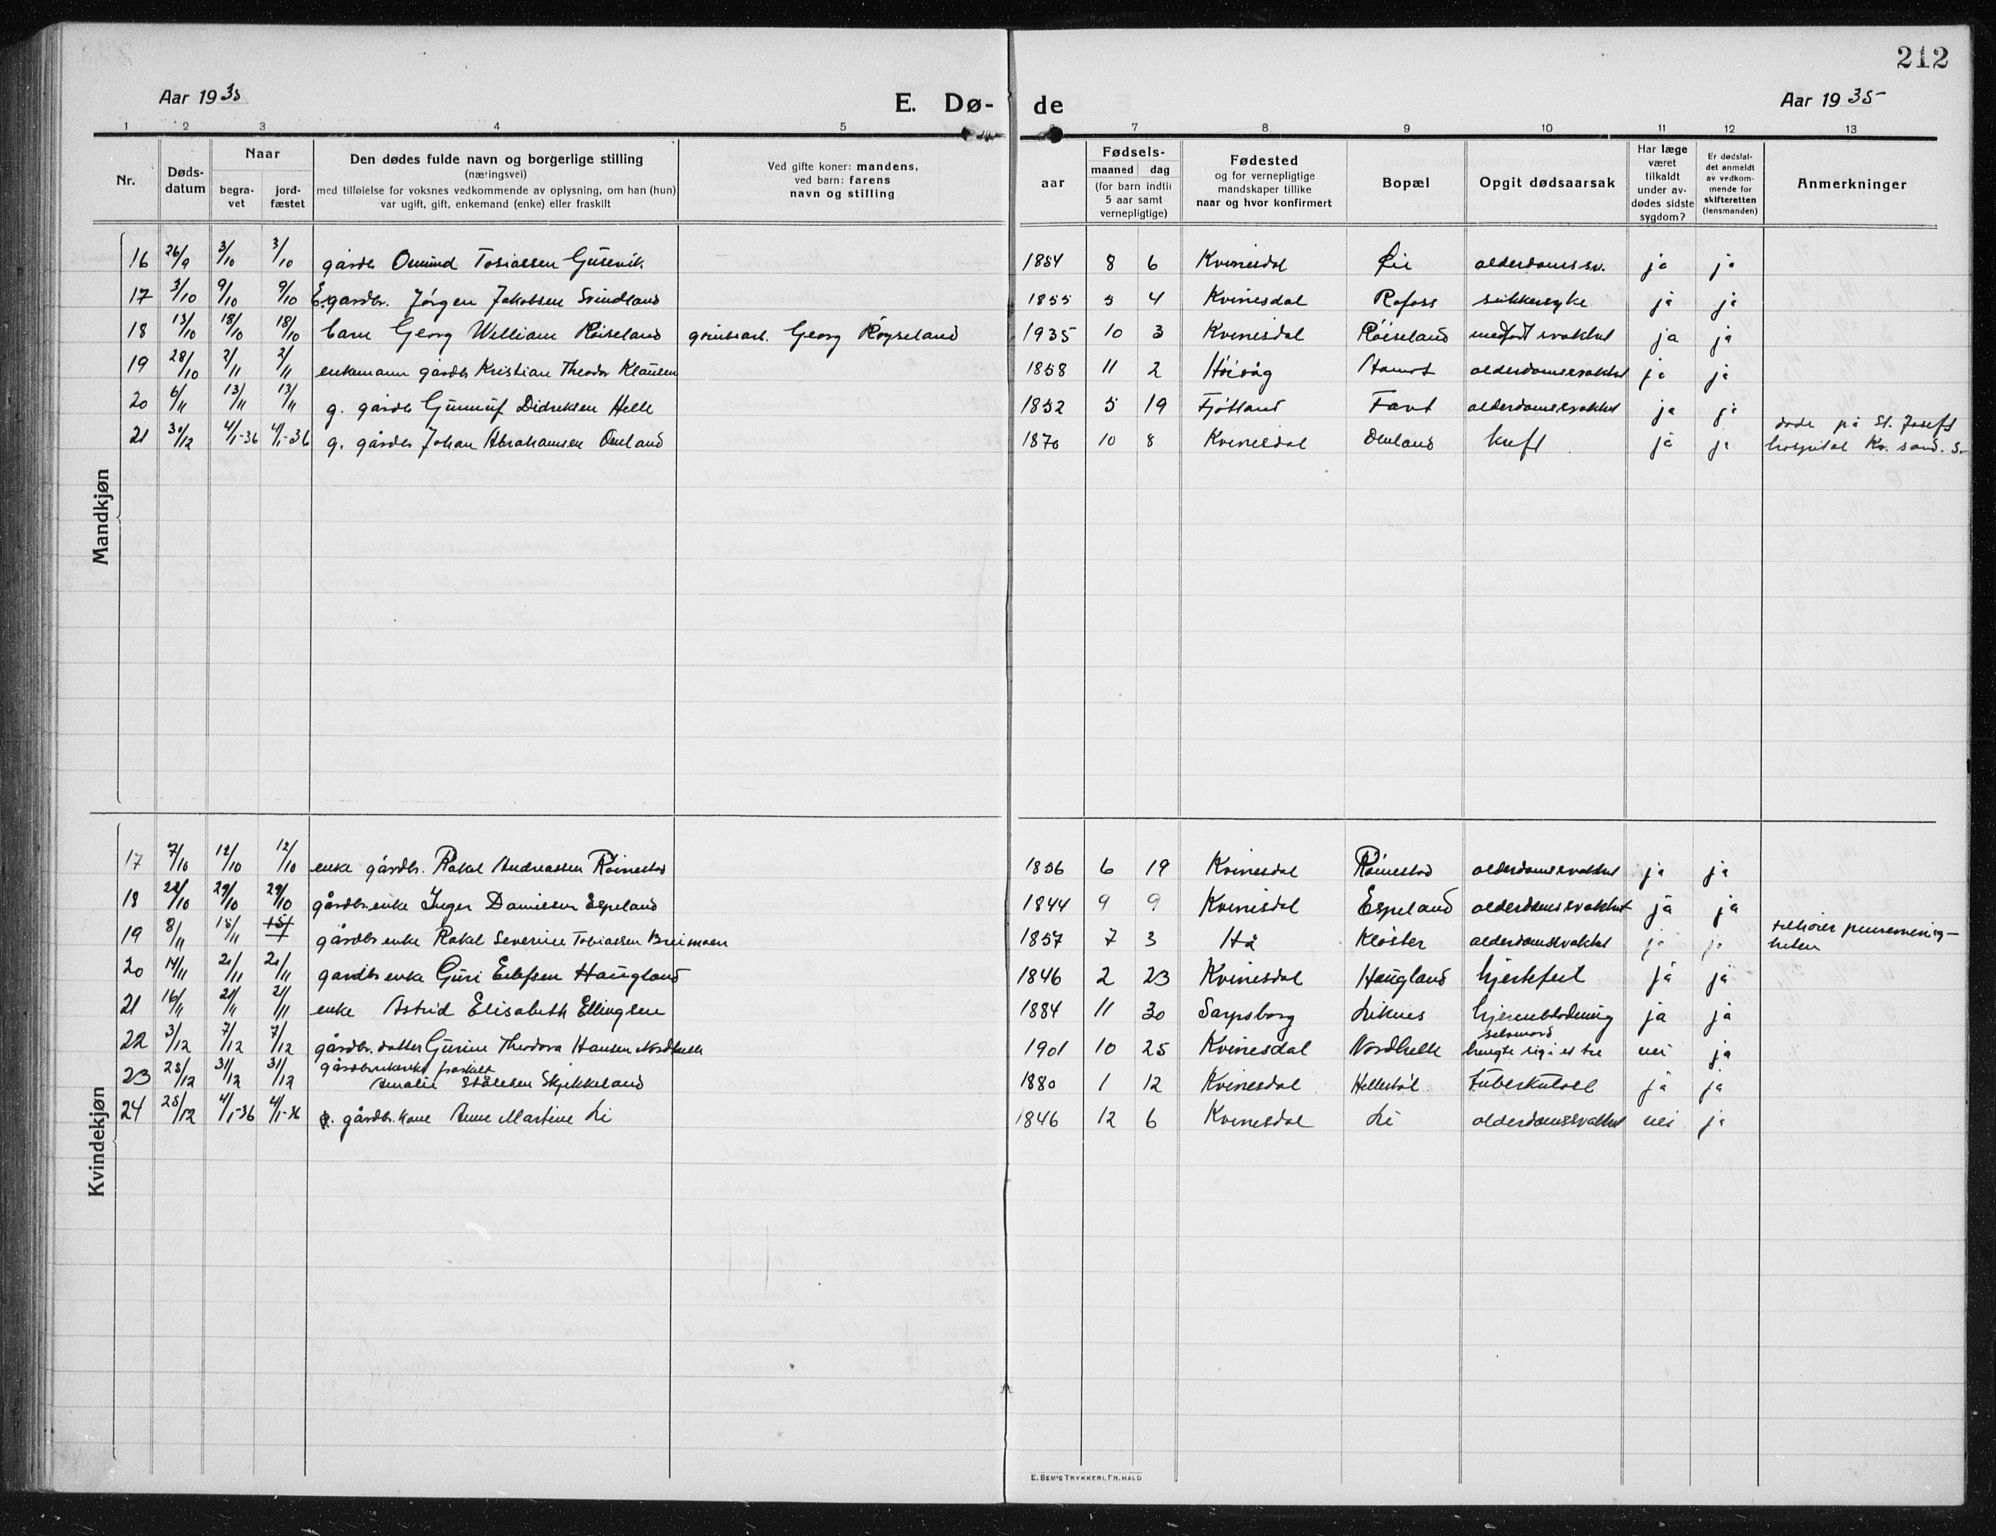 212
Aar 1935
E. Dø-
de
Aar 1935
1 2 3 4 5 7 8 9 10 11 12 13
Nr.
Døds-
datum
Naar
begra-
vet
jord-
fæstet
Den dødes fulde navn og borgerlige stilling
(næringsvei)
med tilføielse for voksnes vedkommende av oplysning, om han (hun)
var ugift, gift, enkemand (enke) eller fraskilt
Ved gifte koner: mandens,
ved barn: farens
navn og stilling
Fødsels-
aar
maaned dag
(for barn indtil
5 aar samt
vernepligtige)
Fødested
og for vernepligtige
mandskaper tillike
naar og hvor konfirmert
Bopæl
Opgit dødsaarsak
Har læge
været
tilkaldt
under av-
dødes sidste
sygdom?
Er dødsfal-
det anmeldt
av vedkom-
mende for
skifteretten
(lensmanden)
Anmerkninger
Mandkjøn
16 26/9 3/10 3/10 gårdbr. Omund Tobiassen Gusevik 1854 8 6 Kvinesdal Øie alderdomssv. ja ja
17 3/10 9/10 9/10 E. gardbr. Jørgen Jakobsen Svindland 1855 5 4 Kvinesdal Rafoss sukkersyke ja ja
18 13/10 18/10 18/10 barn Georg William Røiseland grubearb. Georg Røyseland 1935 10 3 Kvinesdal Røiseland medfødt svakhet ja ja
19 28/10 2/11 2/11 enkemann gårdbr Kristian Theodor Klausen 1858 11 2 Høivåg alderdomssvakhet ja ja
20 6/11 13/11 13/11 g. gårdbr Gunnuf Didriksen Helle 1852 5 19 Fjotland alderdomssvakhet ja ja
21 31/12 4/1-36 4/1-36 g. gårdbr Johan Abrahamsen Omland 1870 10 8 Kvinesdal Omland kreft ja ja døde på St. Josefs
hospital Kr.sand. S.
Kvindekjøn
17 7/10 12/10 12/10 enke gårdbr. Rakel Andreassen Røinestad 1856 6 19 Kvinesdal Røinestad alderdomssvakhet ja ja
18 22/10 29/10 29/10 gårdbr.enke Inger Danielsen Espeland 1844 9 9 Kvinesdal Espeland alderdomssvakhet ja ja
19 8/11 15/11 gårdbr enke Rakel Severine Tobiassen Breimoen 1857 7 3 Hå Kloster alderdomssvakhet ja ja tilhører pinsemenig-
heten
20 14/11 21/11 21/11 gardbr enke Guri Eilefsen Haugland 1846 2 23 Kvinesdal Haugland hjertefeil ja ja
21 16/11 21/11 21/11 enke Astrid Elisabeth Ellingsen 1884 11 30 Sarpsborg Liknes hjerneblødning ja ja
22 3/12 7/12 7/12 gårdbr. datter Gurine Theodora Hansen Nordhelle 1901 10 25 Kvinesdal Nordhelle selvmord
hengte sig i et tre nei ja
23 25/12 31/12 31/12 gårdbrukerske fraskilt
Amalie Stålesen Skjekkeland 1880 1 12 Kvinesdal Hellestøl tuberkulose ja ja
24 25/12 4/1-36 4/1-36 g. gårdbr. kone Anne Martine Li 1846 12 6 Kvinesdal Li alderdomssvakhet nei ja
E. BEM'S TRYKKERI, FR.HALD